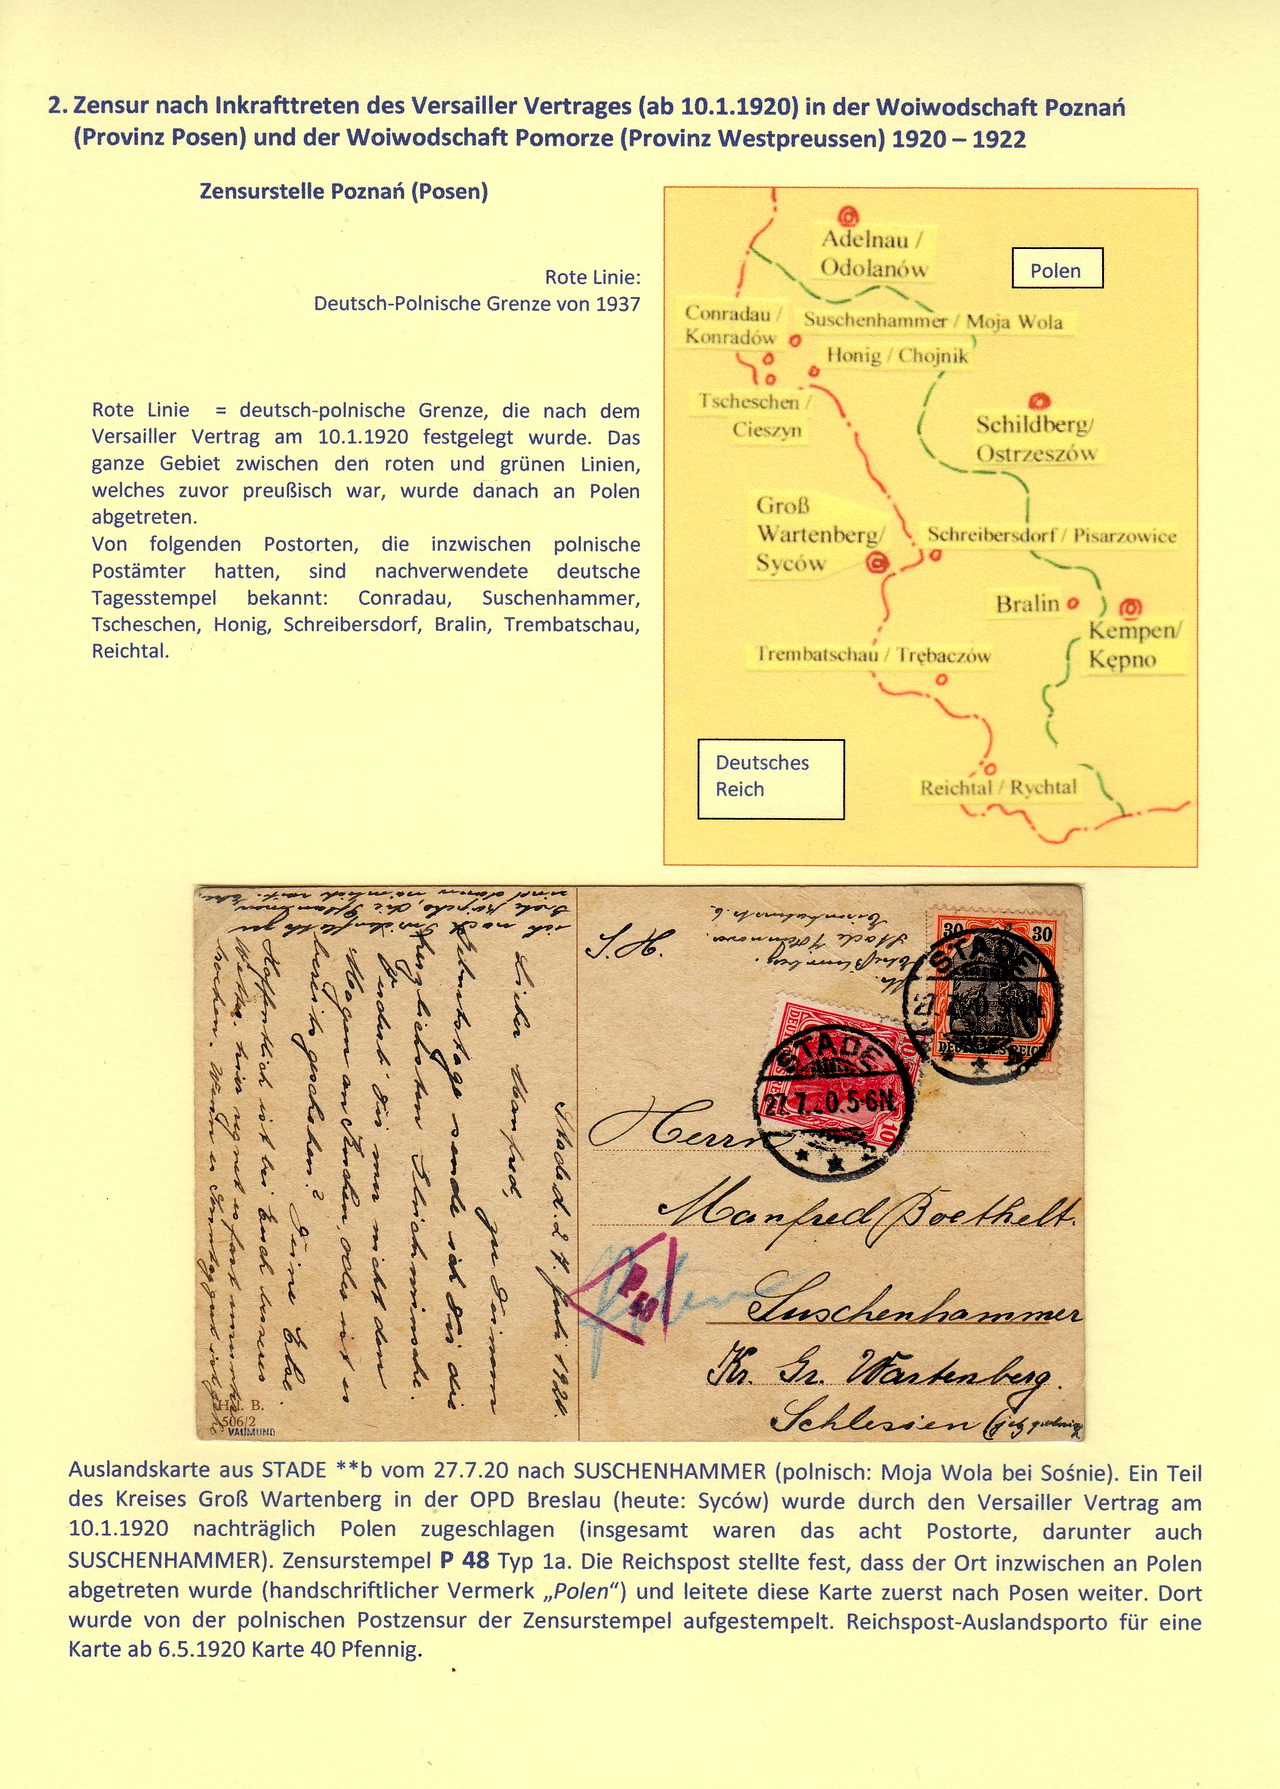 2. Zensur nach Inkrafttreten des Versailler Vertrages (ab 10.1.1920) in der Woiwodschaft Poznań
(Provinz Posen) und der Woiwodschaft Pomorze (Provinz Westpreussen) 1920 – 1922
Zensurstelle Poznań (Posen)
Rote Linie:
Deutsch-Polnische Grenze von 1937
Rote Linie = deutsch-polnische Grenze, die nach dem
Versailler Vertrag am 10.1.1920 festgelegt wurde. Das
ganze Gebiet zwischen den roten und grünen Linien,
welches zuvor preußisch war, wurde danach an Polen
abgetreten.
Von folgenden Postorten, die inzwischen polnische
Postämter hatten, sind nachverwendete deutsche
Tagesstempel bekannt: Conradau, Suschenhammer,
Tscheschen, Honig, Schreibersdorf, Bralin, Trembatschau,
Reichtal.
Adelnau /
Odolanów
Polen
Conradau /
Konradów
Suschenhammer / Moja Wola
Honig / Chojnik
Tscheschen /
Cieszyn
Schildberg/
Ostrzeszów
Groß
Wartenberg/
Syców
Schreibersdorf / Pisarzowice
Bralin
Kempen/
Kępno
Trembatschau / Trębaczów
Deutsches
Reich
Reichtal / Rychtal
Stade d. 27. Juli 1920.
Lieber Manfred,
zu Deinem
Geburtstage sende ich Dir die
herzlichsten Glückwünsche.
bereits geschehen? Deine Else.
Hoffentlich ist bei Euch besseres
H. B.
506/2
VAUMUND
S. H.
30 30
DEUTSCHES REICH
STADE
27.7.20.5-6N.
10
STADE
27.7.20.5-6N.
Herrn
Manfred Boethelt.
P
48
Polen
Suschenhammer
Kr. Gr. Wartenberg.
Schlesien
Auslandskarte aus STADE **b vom 27.7.20 nach SUSCHENHAMMER (polnisch: Moja Wola bei Sośnie). Ein Teil
des Kreises Groß Wartenberg in der OPD Breslau (heute: Syców) wurde durch den Versailler Vertrag am
10.1.1920 nachträglich Polen zugeschlagen (insgesamt waren das acht Postorte, darunter auch
SUSCHENHAMMER). Zensurstempel P 48 Typ 1a. Die Reichspost stellte fest, dass der Ort inzwischen an Polen
abgetreten wurde (handschriftlicher Vermerk „Polen“) und leitete diese Karte zuerst nach Posen weiter. Dort
wurde von der polnischen Postzensur der Zensurstempel aufgestempelt. Reichspost-Auslandsporto für eine
Karte ab 6.5.1920 Karte 40 Pfennig.